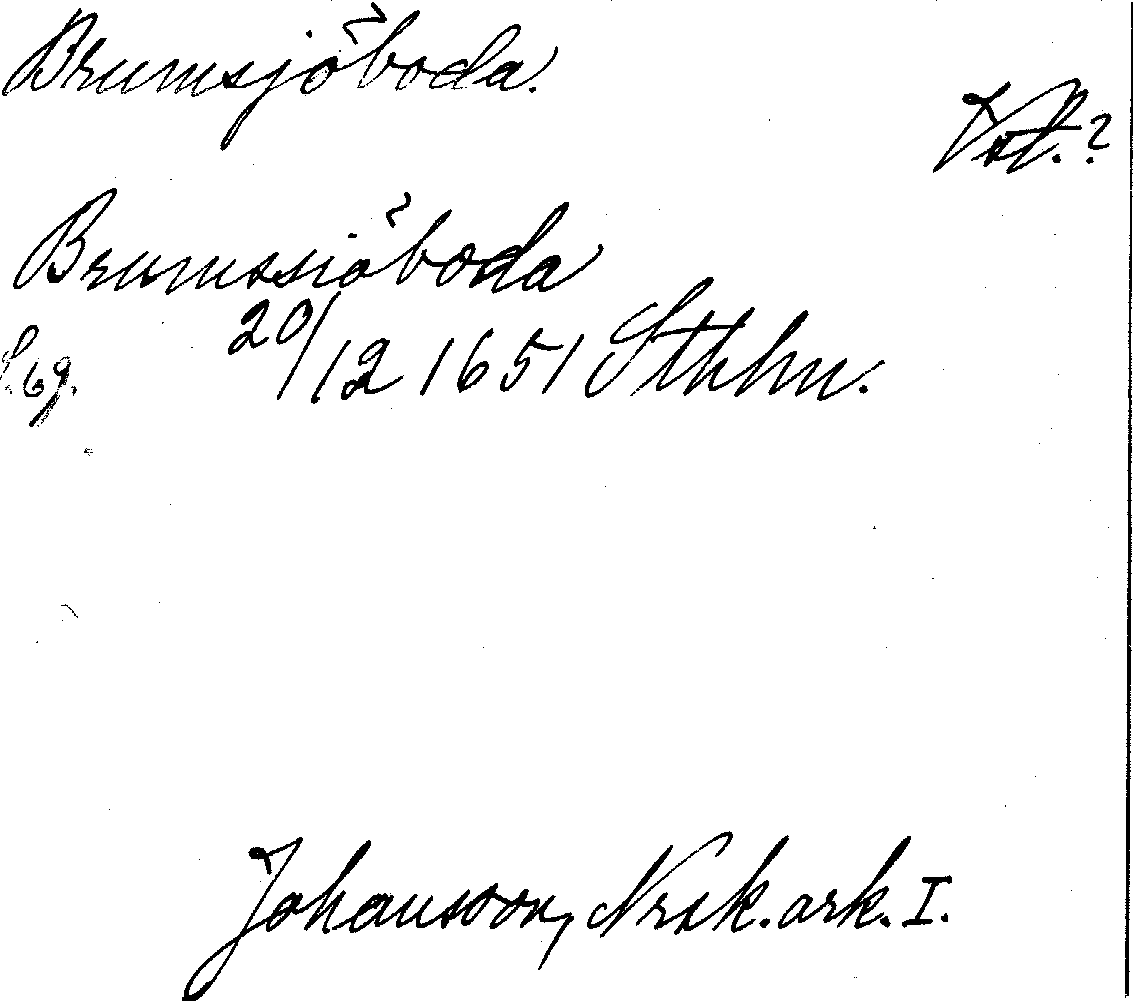 Brumsjöboda.
Vstl.?
Brumssiöboda
20/12 1651 Sthlm.
Johansson, Nrsk. ark. I.